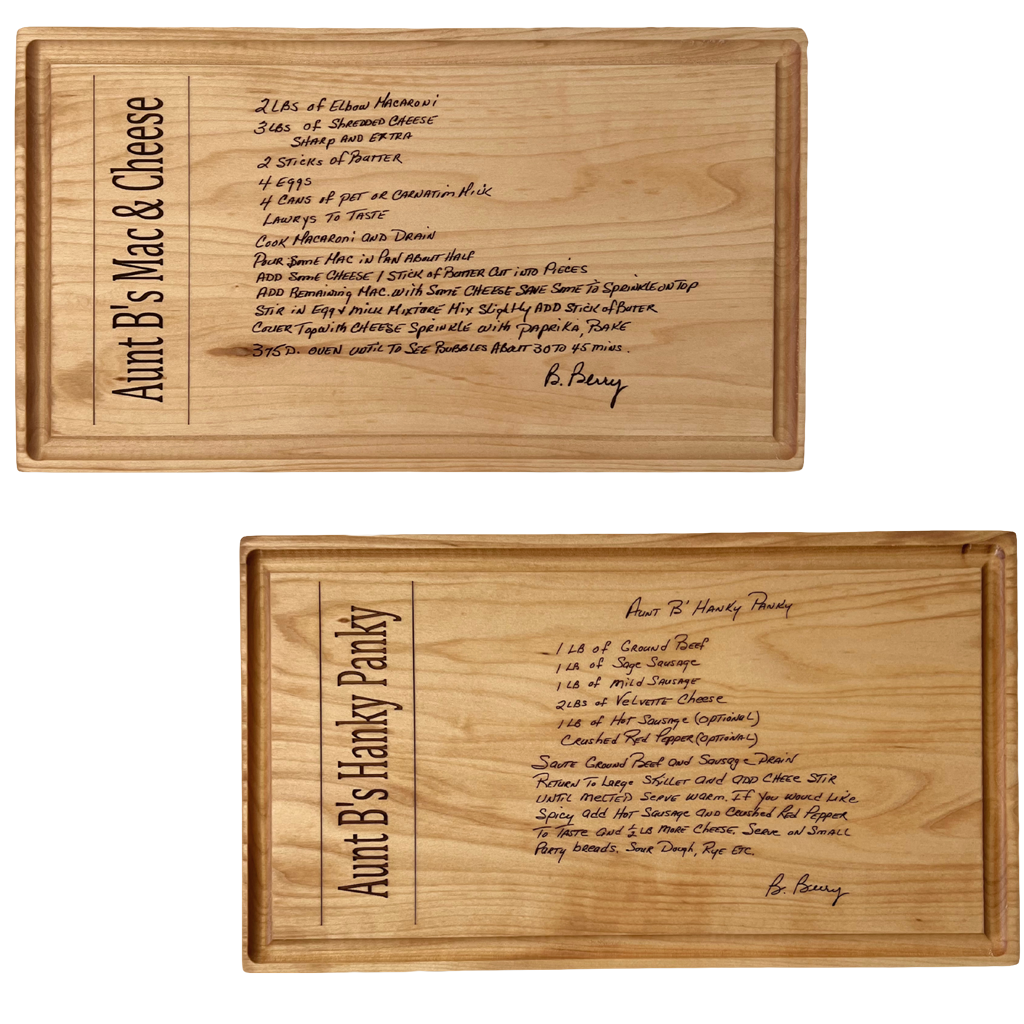 Aunt B's Mac & Cheese
2 LBS of Elbow Macaroni
3 LBS of Shredded Cheese
Sharp and Extra
2 Sticks of Butter
4 Eggs
4 Cans of PET or Carnation Milk
Lawrys To Taste
Cook Macaroni and Drain
Pour Some Mac in Pan About Half
Add Some Cheese 1 Stick of Butter Cut into Pieces
Add Remaining Mac. with Some Cheese Save Some To Sprinkle on Top
Stir in Egg & Milk Mixtore Mix Slightly Add Stick of Buter
Cover Top with Cheese Sprinkle with Paprika, Bake
375 D. oven until To See Bubbles About 30 To 45 mins.
B. Berry
Aunt B's Hanky Panky
Aunt B' Hanky Panky
1 LB of Ground Beef
1 LB of Sage Sausage
1 LB of Mild Sausage
2 LBS of Velvette Cheese
1 LB of Hot Sausage (optional)
Crushed Red Pepper (optional)
Saute Ground Beef and Sausage Drain
Return To Large Skillet and add Cheese Stir
until melted Serve warm. If you would Like
Spicy add Hot Sausage and Crushed Red Pepper
To Taste and ½ LB more Cheese. Serve on Small
Party breads. Sour Dough, Rye etc.
B. Berry